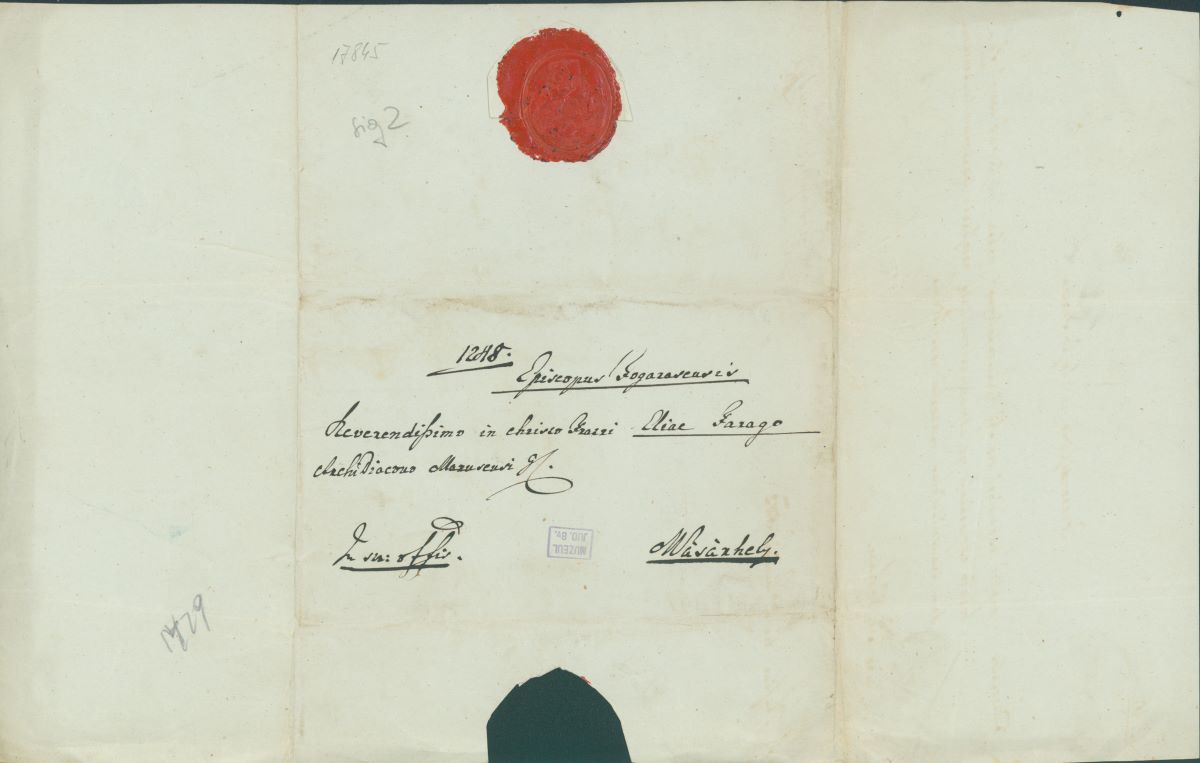 17845
sig 2
1248.
Episcopus Fogarasensis
Reverendißimo in Christo Fratri Eliae Farago
Archi Diacono Marusensi
Ex offis.
Másárhely.
MUZEUL
JUD. BV.